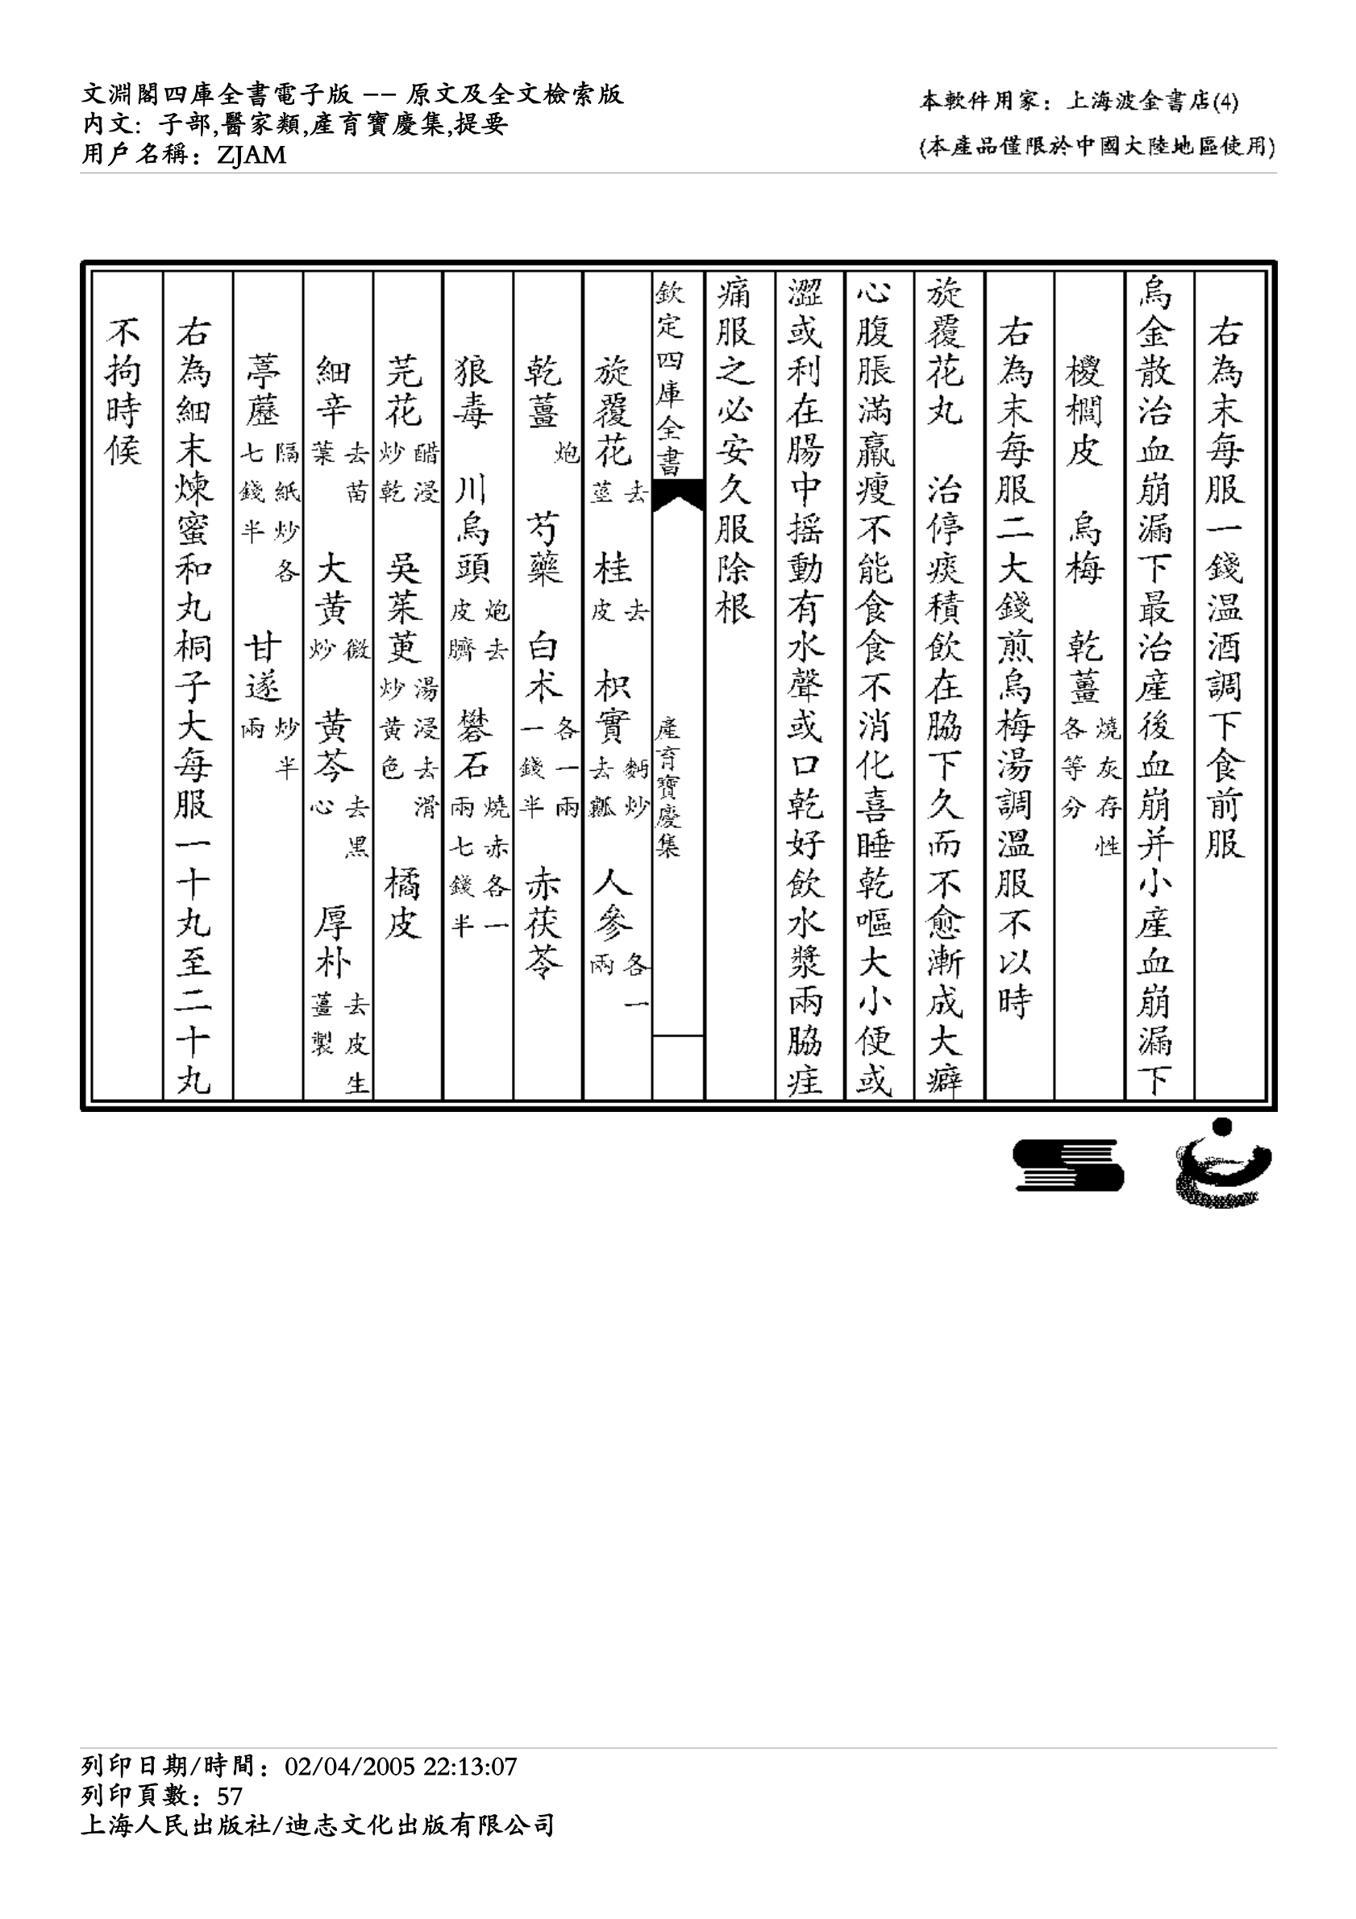 文淵閣四庫全書電子版 −− 原文及全文檢索版
內文：子部,醫家類,產育寶慶集,提要
用戶名稱：ZJAM
本軟件用家：上海波金書店(4)
(本產品僅限於中國大陸地區使用)
右為末每服一錢温酒調下食前服
烏金散治血崩漏下最治產後血崩并小產血崩漏下
椶櫚皮　烏梅　乾薑燒灰存性各等分
右為末每服二大錢煎烏梅湯調溫服不以時
旋覆花丸　治停痰積飲在脇下久而不愈漸成大癖
心腹脹滿羸瘦不能食食不消化喜睡乾嘔大小便或
澀或利在腸中摇動有水聲或口乾好飲水漿兩脇疰
痛服之必安久服除根
欽定四庫全書
產育寶慶集
旋覆花去莖　桂去皮　枳實麪炒去瓤　人參各一兩
乾薑炮　芍藥　白朮各一兩一錢半　赤茯苓
狼毒　川烏頭炮去皮臍　礬石燒赤各一兩七錢半
芫花醋浸炒乾　吳茱萸湯浸去滑炒黃色　橘皮
細辛去苗葉　大黃微炒　黃芩去黑心　厚朴去皮生薑製
葶藶隔紙炒各七錢半　甘遂炒半兩
右為細末煉蜜和丸桐子大每服一十丸至二十丸
不拘時候
列印日期/時間：02/04/2005 22:13:07
列印頁數：57
上海人民出版社/迪志文化出版有限公司